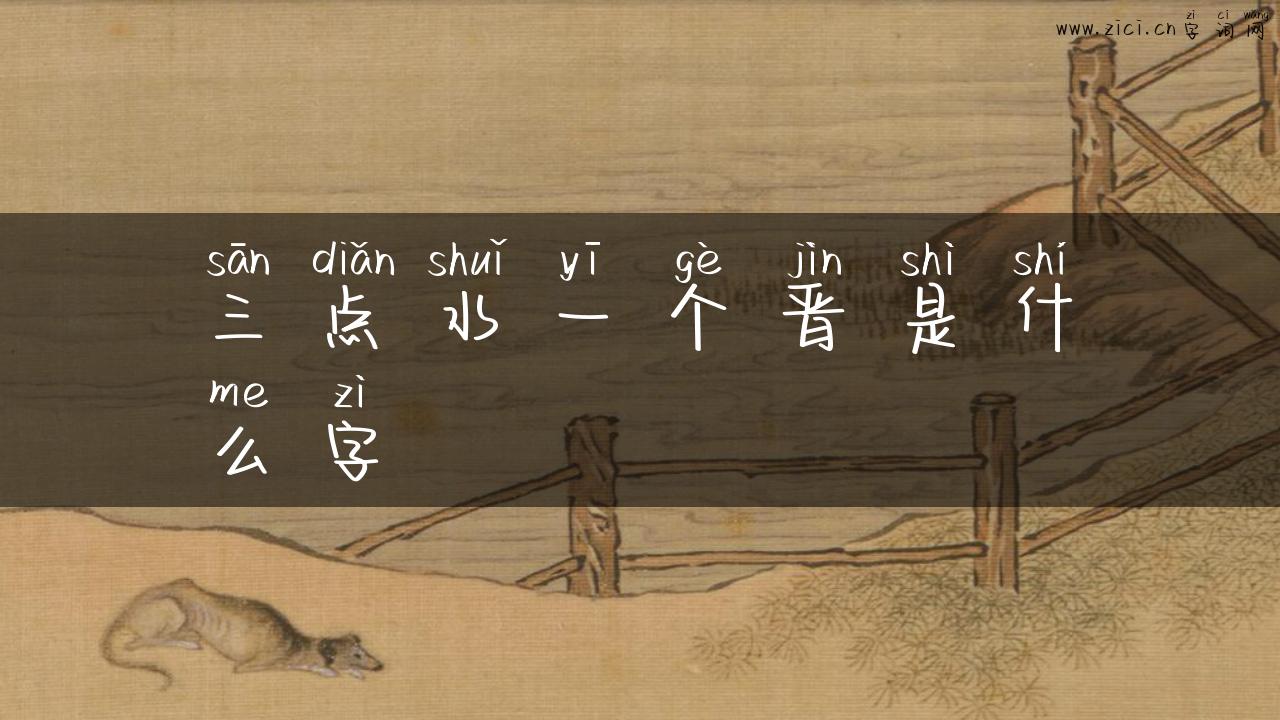 zi ci wang
www.zici.cn 字 词 网
sān diǎn shuǐ yī gè jìn shì shí
三 点 水 一 个 晋 是 什
me zì
么 字